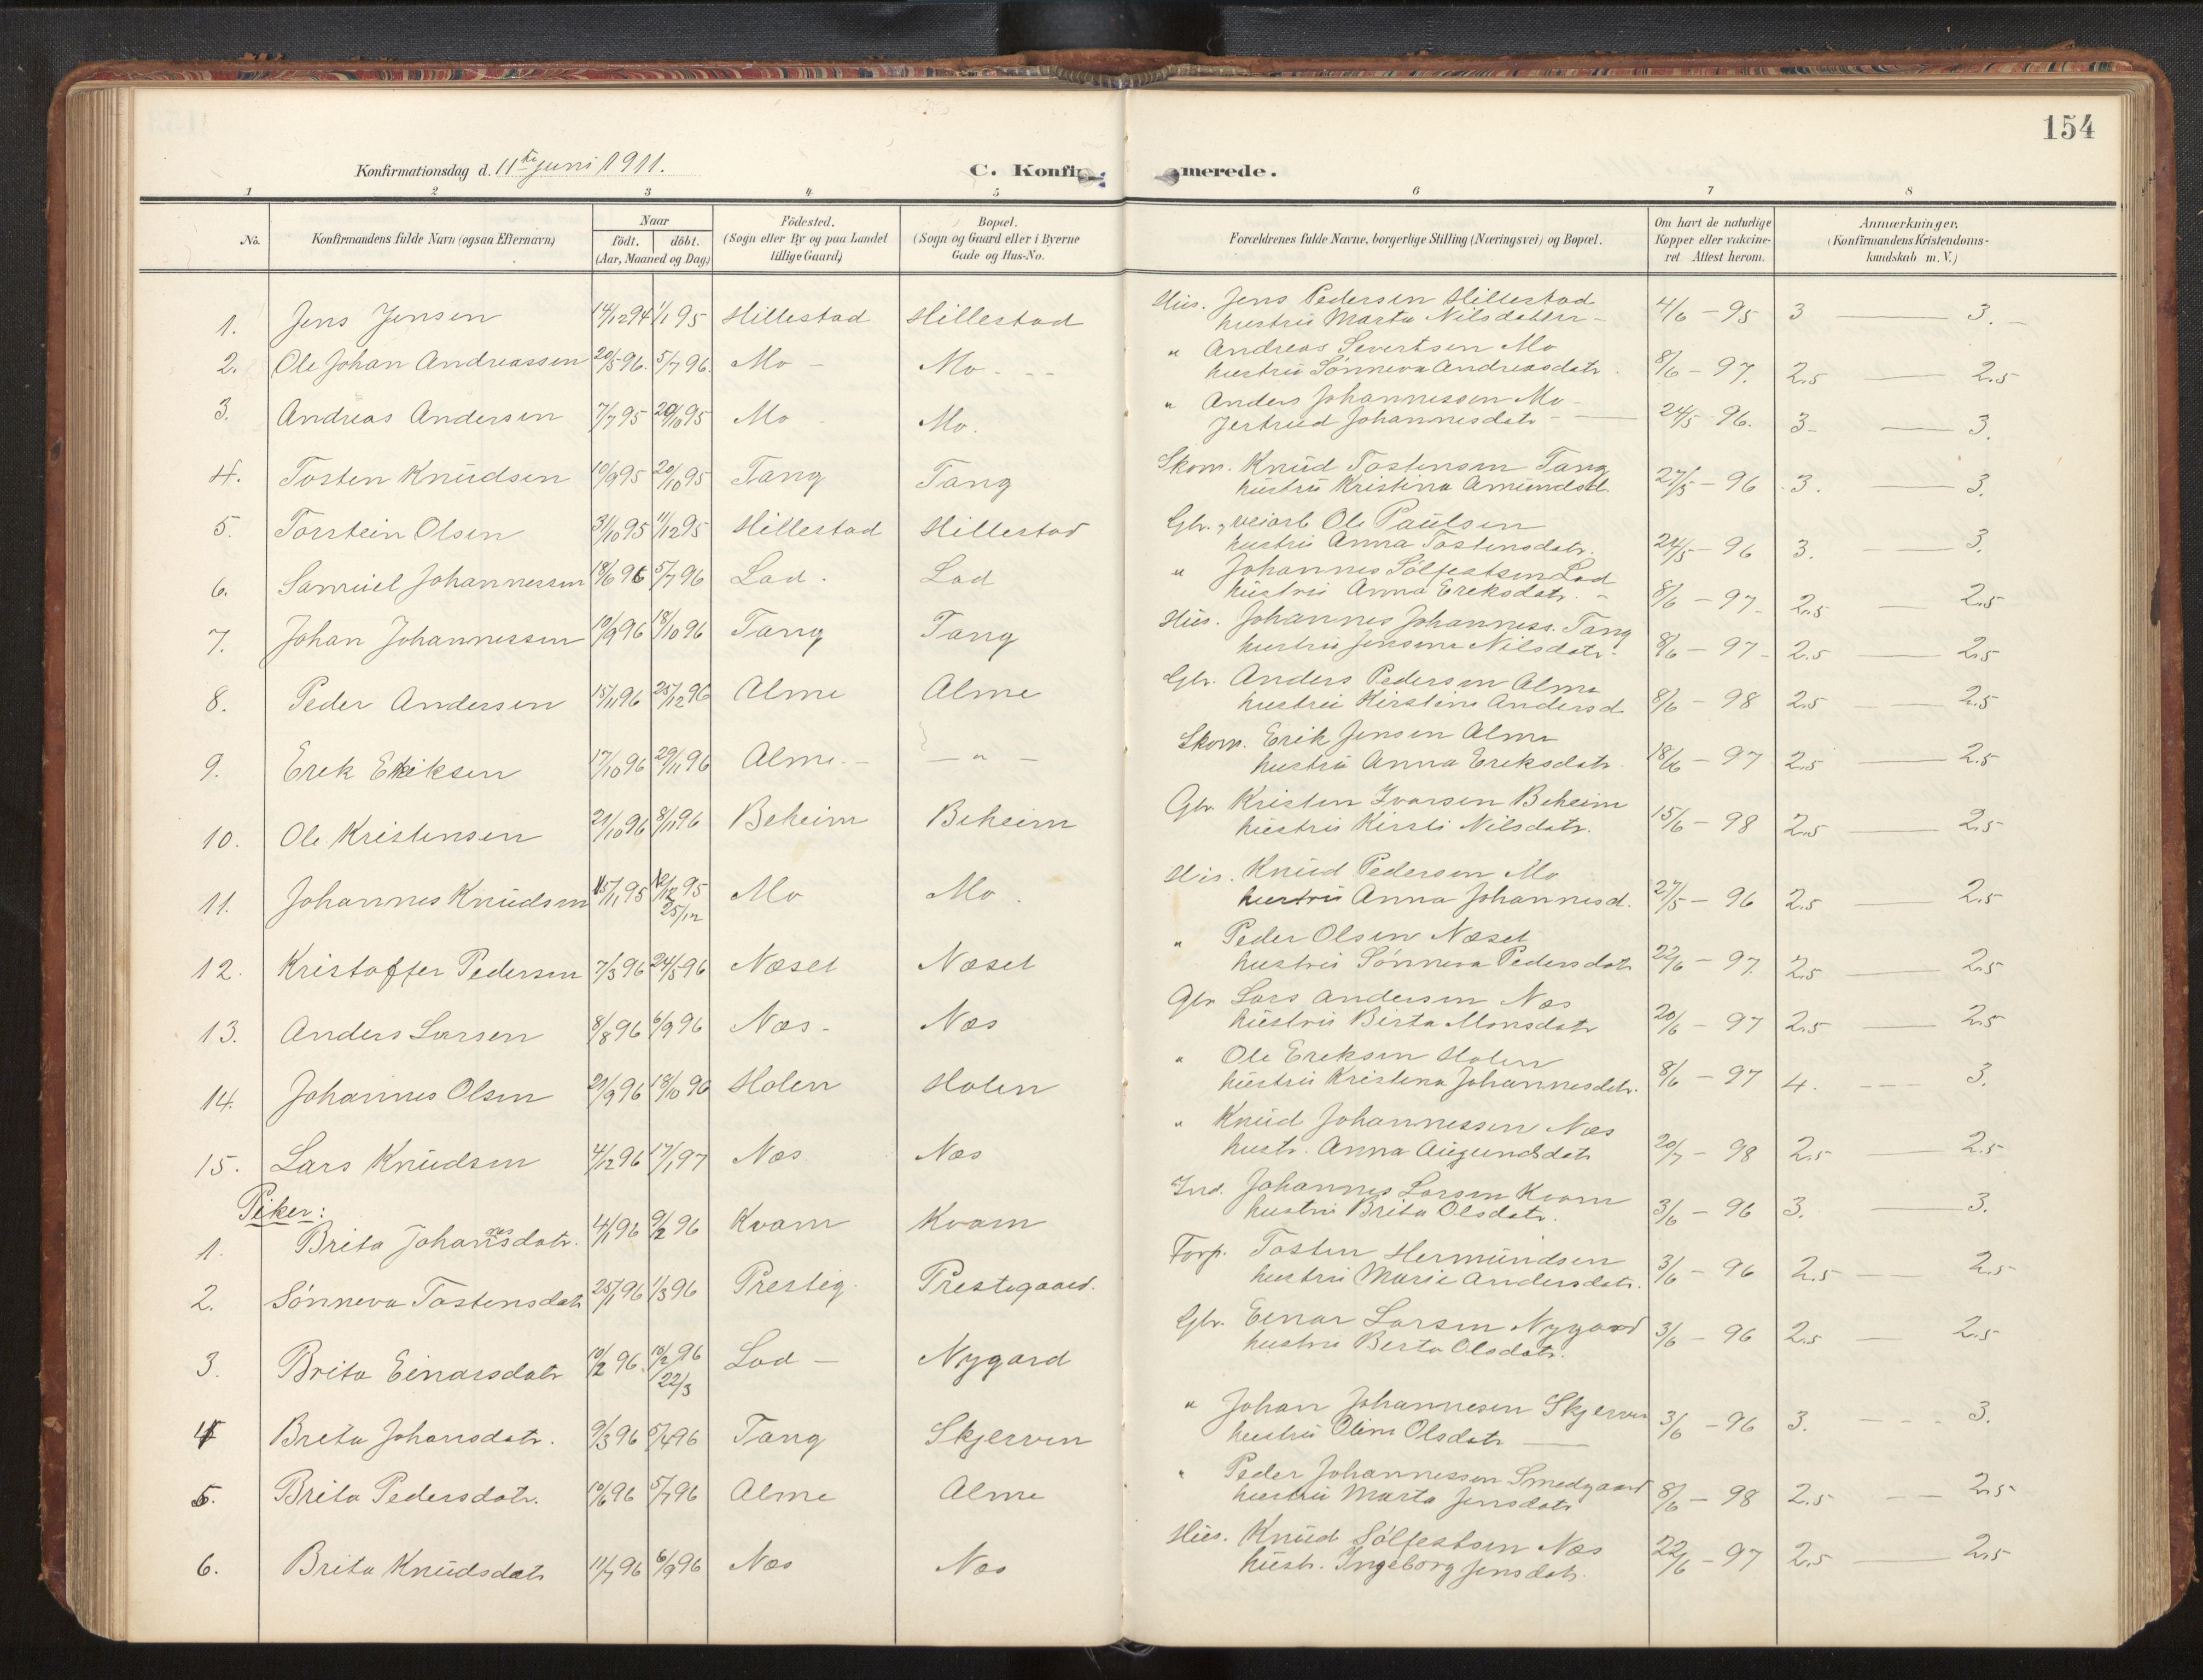 154
Konfirmationsdag d. 11te juni 1911.
C. Konfir
merede.
1 2 3 4 5 6 7 8
No.
Konfirmandens fulde Navn (ogsaa Efternavn)
Naar
födt. döbt.
(Aar, Maaned og Dag)
Födested.
(Sogn eller By og paa Landet
tillige Gaard)
Bopæl.
(Sogn og Gaard eller i Byerne
Gade og Hus-No.
Forældrenes fulde Navne, borgerlige Stilling (Næringsvei) og Bopæl.
Om havt de naturlige
Kopper eller vakcine-
ret Attest herom.
Anmærkninger.
(Konfirmandens Kristendoms-
kundskab m. V.)
1. Jens Jensen 14/12 94 1/1 95 Hillestad Hillestad Hus. Jens Pedersen Hillestad 4/6 - 95 3 — 3. -
hustru Marta Nilsdatter -
2. Ole Johan Andreassen 20/5 96. 5/7 96. Mo - Mo. - - " Andreas Severtsen Mo 8/6 - 97. 2.5 — 2.5
hustru Sønneva Andreasdatr.
3. Andreas Andersen 7/7 95 20/10 95 Mo Mo. " Anders Johannessen Mo - 24/5 - 96. 3 - — 3.
Jertrud Johannesdatr -
4. Tosten Knudsen 10/9 95 20/10 95 Tang Tang Skom. Knud Tostensen Tang 27/5 - 96 3. — 3.
hustru Kristina Amundsd.
5. Torstein Olsen 31/10 95 11/12 95 Hillestad Hillestad Gbr., veiarb Ole Paulsen 24/5 - 96 3. — 3.
hustru Anna Tostensdatr.
6. Samuel Johannessen 18/6 96 5/7 96 Lad. Lad " Johannes Sølfestsen Lad 8/6 - 97. 2.5 — 2.5
hustru Anna Ereksdatr. -
7. Johan Johannessen 10/9 96 18/10 96 Tang Tang Hus. Johannes Johanness. Tang 8/6 - 97 - 2.5 — 2.5
hustru Jensina Nilsdatr.
8. Peder Andersen 15/11 96 25/12 96 Alme Alme Gbr. Anders Pedersen Alme 8/6 - 98 2.5 — 2.5
hustru Kirstine Andersd.
9. Erek Eriksen 17/10 96 29/11 96 Alme. - — " — Skom. Erik Jensen Alme 18/6 - 97 2.5 — 2.5
hustru Anna Ereksdatr.
10. Ole Kristensen 21/10 96 8/11 96 Beheim Beheim Gbr. Kristen Ivarsen Beheim 15/6 - 98 2.5 — 2.5
hustru Kirsti Nilsdatr.
11. Johannes Knudsen 15/11 95 12/12 95 Mo Mo. Hus. Knud Pedersen Mo 27/5 - 96 2.5 — 2.5
25/12 hustru Anna Johannesd.
12. Kristoffer Pedersen 7/3 96 24/5 96 Næset Næset " Peder Olsen Næset 22/6 - 97. 2.5 — 2.5
hustru Sønneva Pedersdatr
13. Anders Larsen 8/8 96 6/9 96 Næs - Næs Gbr Lars Andersen Næs 20/6 - 97 2.5 — 2.5
hustru Birta Monsdatr
14. Johannes Olsen 21/9 96 18/10 96 Holen Holen " Ole Ereksen Holen 8/6 - 97 4. - - - 3.
hustru Kristina Johannesdatr.
15. Lars Knudsen 4/12 96 17/1 97 Næs Næs " Knud Johannessen Næs 20/7 - 98 2.5 — 2.5
hustr. Anna Augundsdatr
Piker:
1. Brita Johannesdatr. 4/1 96 9/2 96 Kvam Kvam Ind. Johannes Larsen Kvam 3/6 - 96 3. — 3.
hustru Brita Olsdatr.
2. Sønneva Tostensdatr 25/1 96 1/3 96 Presteg. Prestegaard. Forp. Tosten Hermundsen 3/6 - 96 2.5 — 2.5
hustru Marie Andersdatr.
3. Brita Einarsdatr 10/2 96. 10/2 96 Lad - Nygard Gbr. Einar Larsen Nygaard 3/6 - 96 2.5 — 2.5
22/3 hustru Berta Olsdatr.
4 Brita Johansdatr. 9/3 96 5/4 96 Tang Skjerven " Johan Johannesen Skjerven 3/6 - 96 3. - - - 3.
hustru Oline Olsdatr —
5. Brita Pedersdatr. 10/6 96 5/7 96 Alme Alme " Peder Johannessen Smedgaard 8/6 - 98 2.5 — 2.5
hustru Marta Jensdatr
6. Brita Knudsdatr 11/7 96 6/9 96 Næs Næs Hus. Knud Sølfestsen Næs 22/6 - 97 2.5 — 2.5
hustr. Ingeborg Jensdatr.